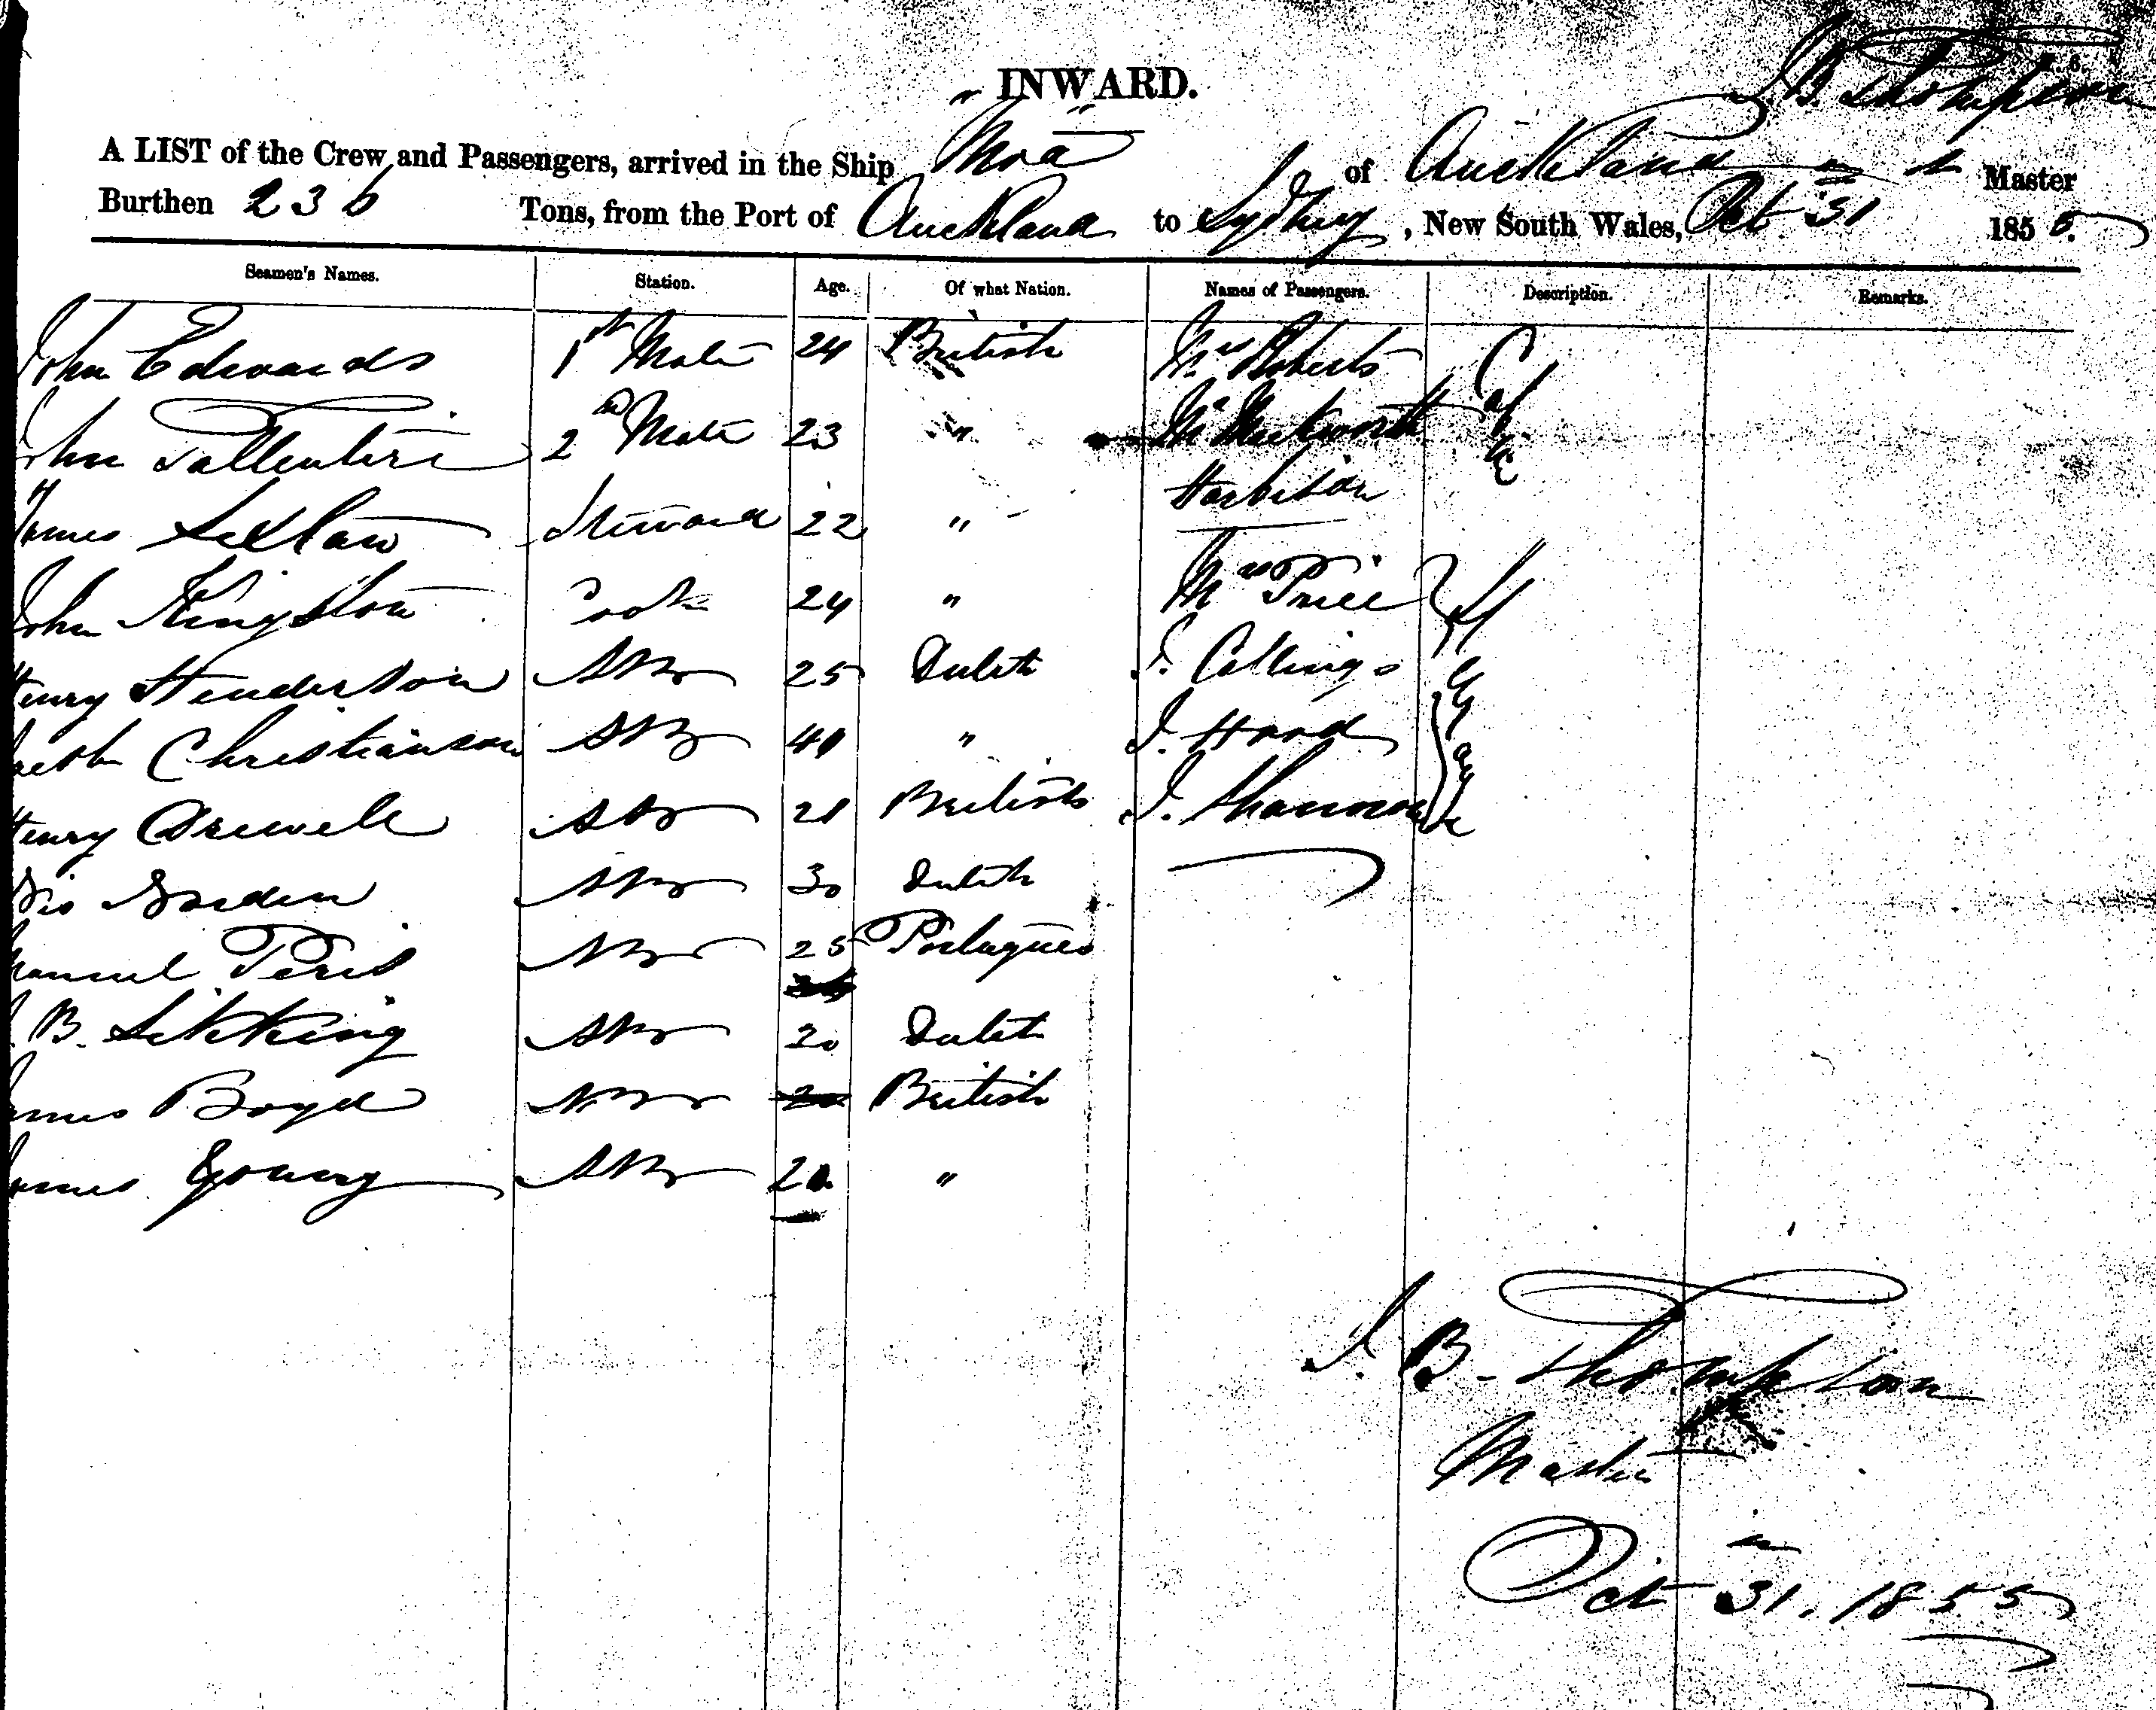 INWARD.
J. B. Thompson
A LIST of the Crew and Passengers, arrived in the Ship "Moa" of Auckland Master
Burthen 236 Tons, from the Port of Auckland to Sydney, New South Wales, Oct 31 1855.
Seamen's Names. Station. Age. Of what Nation. Names of Passengers. Description. Remarks.
John Edwards 1st Mate 24 British Mrs Roberts Cabin
John Tallentire 2nd Mate 23 " Mr
Harbison
James Steward 22 "
John Kingston Cook 24 " Mrs Price
Henry Henderson AB 25 Dutch J. Collings
Christianson AB 40 " J. Hood
Henry Crewell AB 21 British J. Shannon
AB 30 Dutch
Manuel Peris AB 25 Portugues
B. Sikking AB 20 Dutch
James Boyd AB British
James Young AB "
J. B. Thompson
Master
Oct 31. 1855